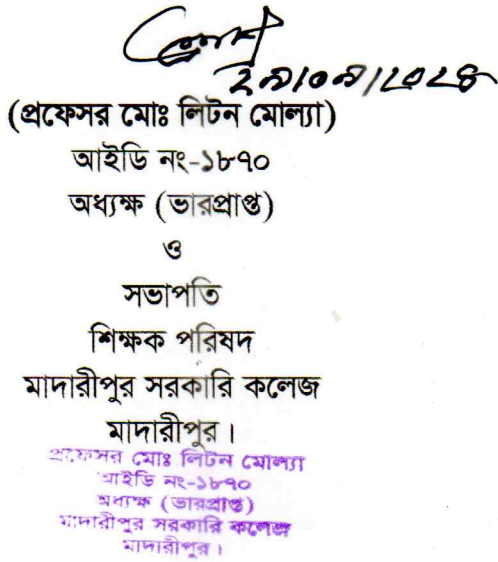 ২৯/০৯/২০২৪
(প্রফেসর মোঃ লিটন মোল্যা)
আইডি নং-১৮৭০
অধ্যক্ষ (ভারপ্রাপ্ত)
ও
সভাপতি
শিক্ষক পরিষদ
মাদারীপুর সরকারি কলেজ
মাদারীপুর।
প্রফেসর মোঃ লিটন মোল্যা
আইডি নং-১৮৭০
অধ্যক্ষ (ভারপ্রাপ্ত)
মাদারীপুর সরকারি কলেজ
মাদারীপুর।